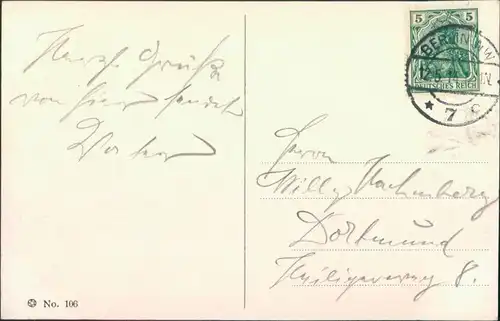 Herzl. Grüße
von hier sendet
5 5
DEUTSCHES REICH
BERLIN NW
* 7 c
Herrn
Willy Hachenberg
Dortmund
Heiligerweg 8.
No. 106